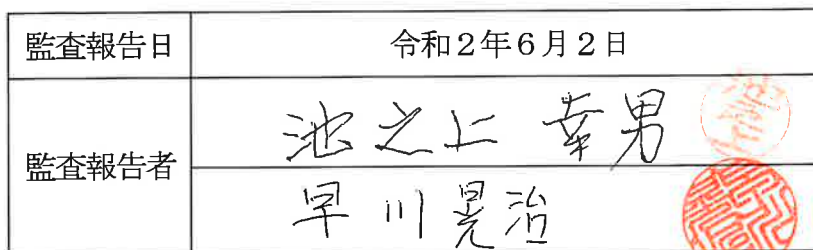 監査報告日 令和2年6月2日
監査報告者
池之上 幸男
早川晃治